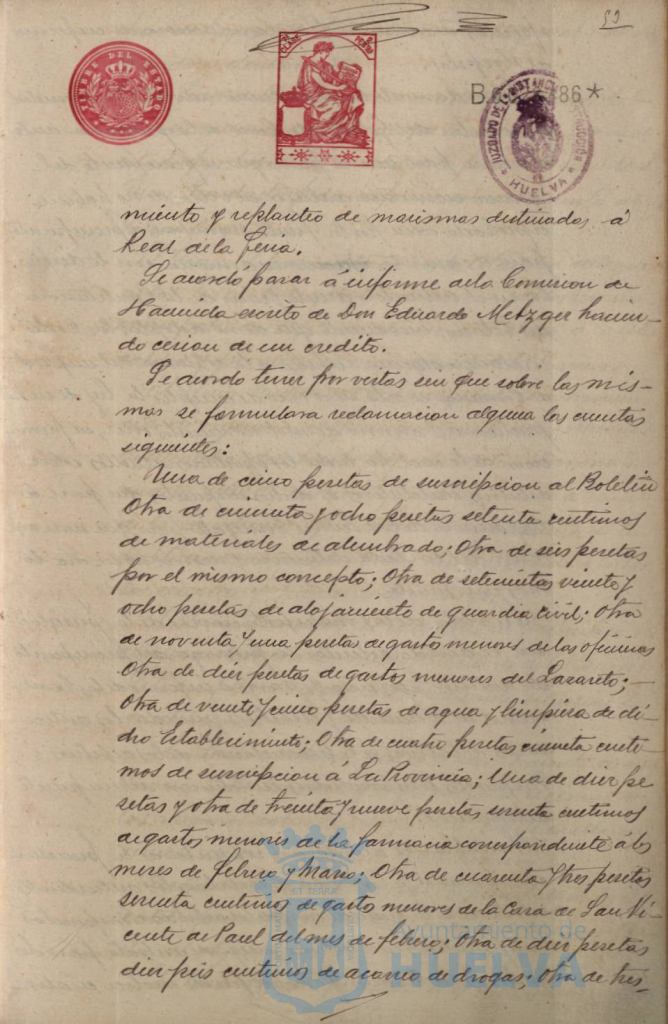 59
TIMBRE DEL ESTADO
JUZGADO DE
HUELVA
miento y replanteo de marismas destinadas á
Real de la feria.
Se acordó pasar á informe dela Comision de
Hacienda escrito de Don Eduardo Metzger hacien-
do cesion de un credito.
Se acordo tener por vistas sin que sobre las mis-
mas se formulara reclamacion alguna las cuentas
siguientes:
Una de cinco pesetas de suscripcion al Boletin
Otra de cincuenta y ocho pesetas setenta centimos
de materiales de alumbrado; Otra de seis pesetas
por el mismo concepto; Otra de setecientas veinte y
ocho pesetas de alojamiento de guardia Civil; Otra
de noventa y una pesetas de gastos menores de las oficinas
Otra de diez pesetas de gastos menores del Lazareto;
Otra de veinte y cinco pesetas de agua y limpieza de di-
cho Establecimiento; Otra de cuatro pesetas cincuenta centi-
mos de suscripcion á La Provincia; Una de diez pe
setas y otra de treinta y nueve pesetas sesenta centimos
de gastos menores de la farmacia correspondiente á los
meses de febrero y Marzo; Otra de cuarenta y tres pesetas
sesenta centimos de gastos menores de la Casa de San Vi-
cente de Paul del mes de febrero; Otra de diez pesetas
diez seis centimos de acarreo de drogas; Otra de tres-
Ayuntamiento de
HUELVA